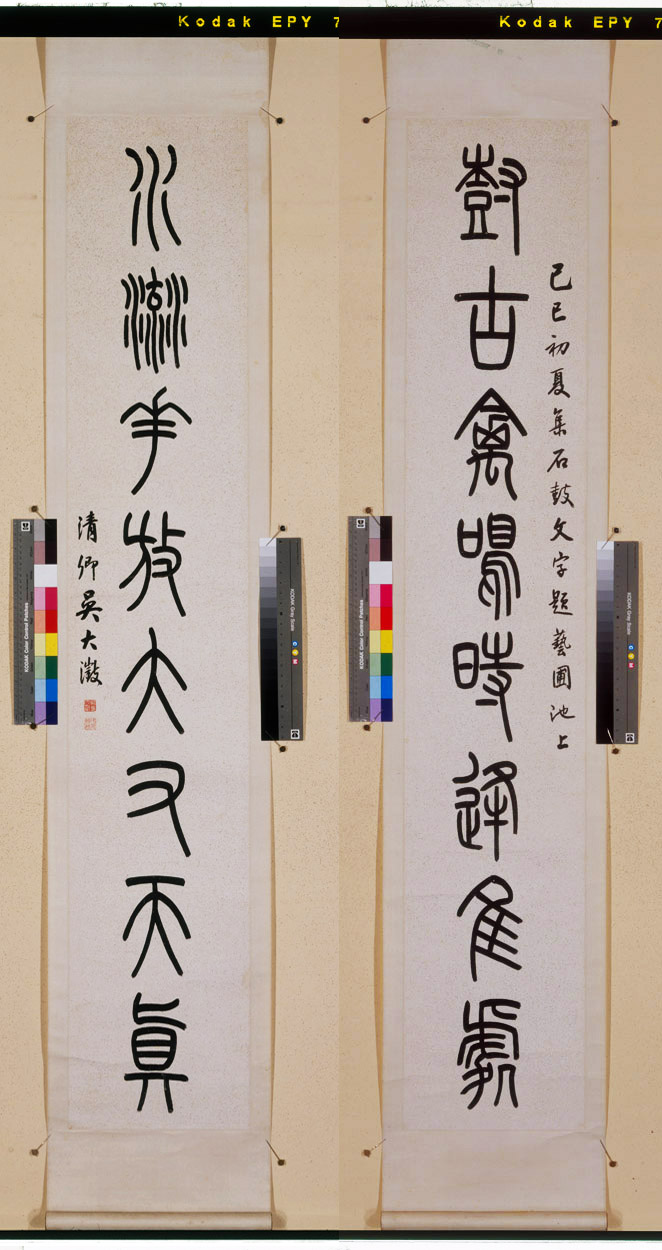 Kodak EPY 7
Kodak EPY 7
己巳初夏集石鼓文字題藝圃池上
尌古禽鳴時逢隹處
水流華放大又天真
清卿吳大澂
KODAK Color Control Patches
KODAK Gray Scale
KODAK Color Control Patches
KODAK Gray Scale